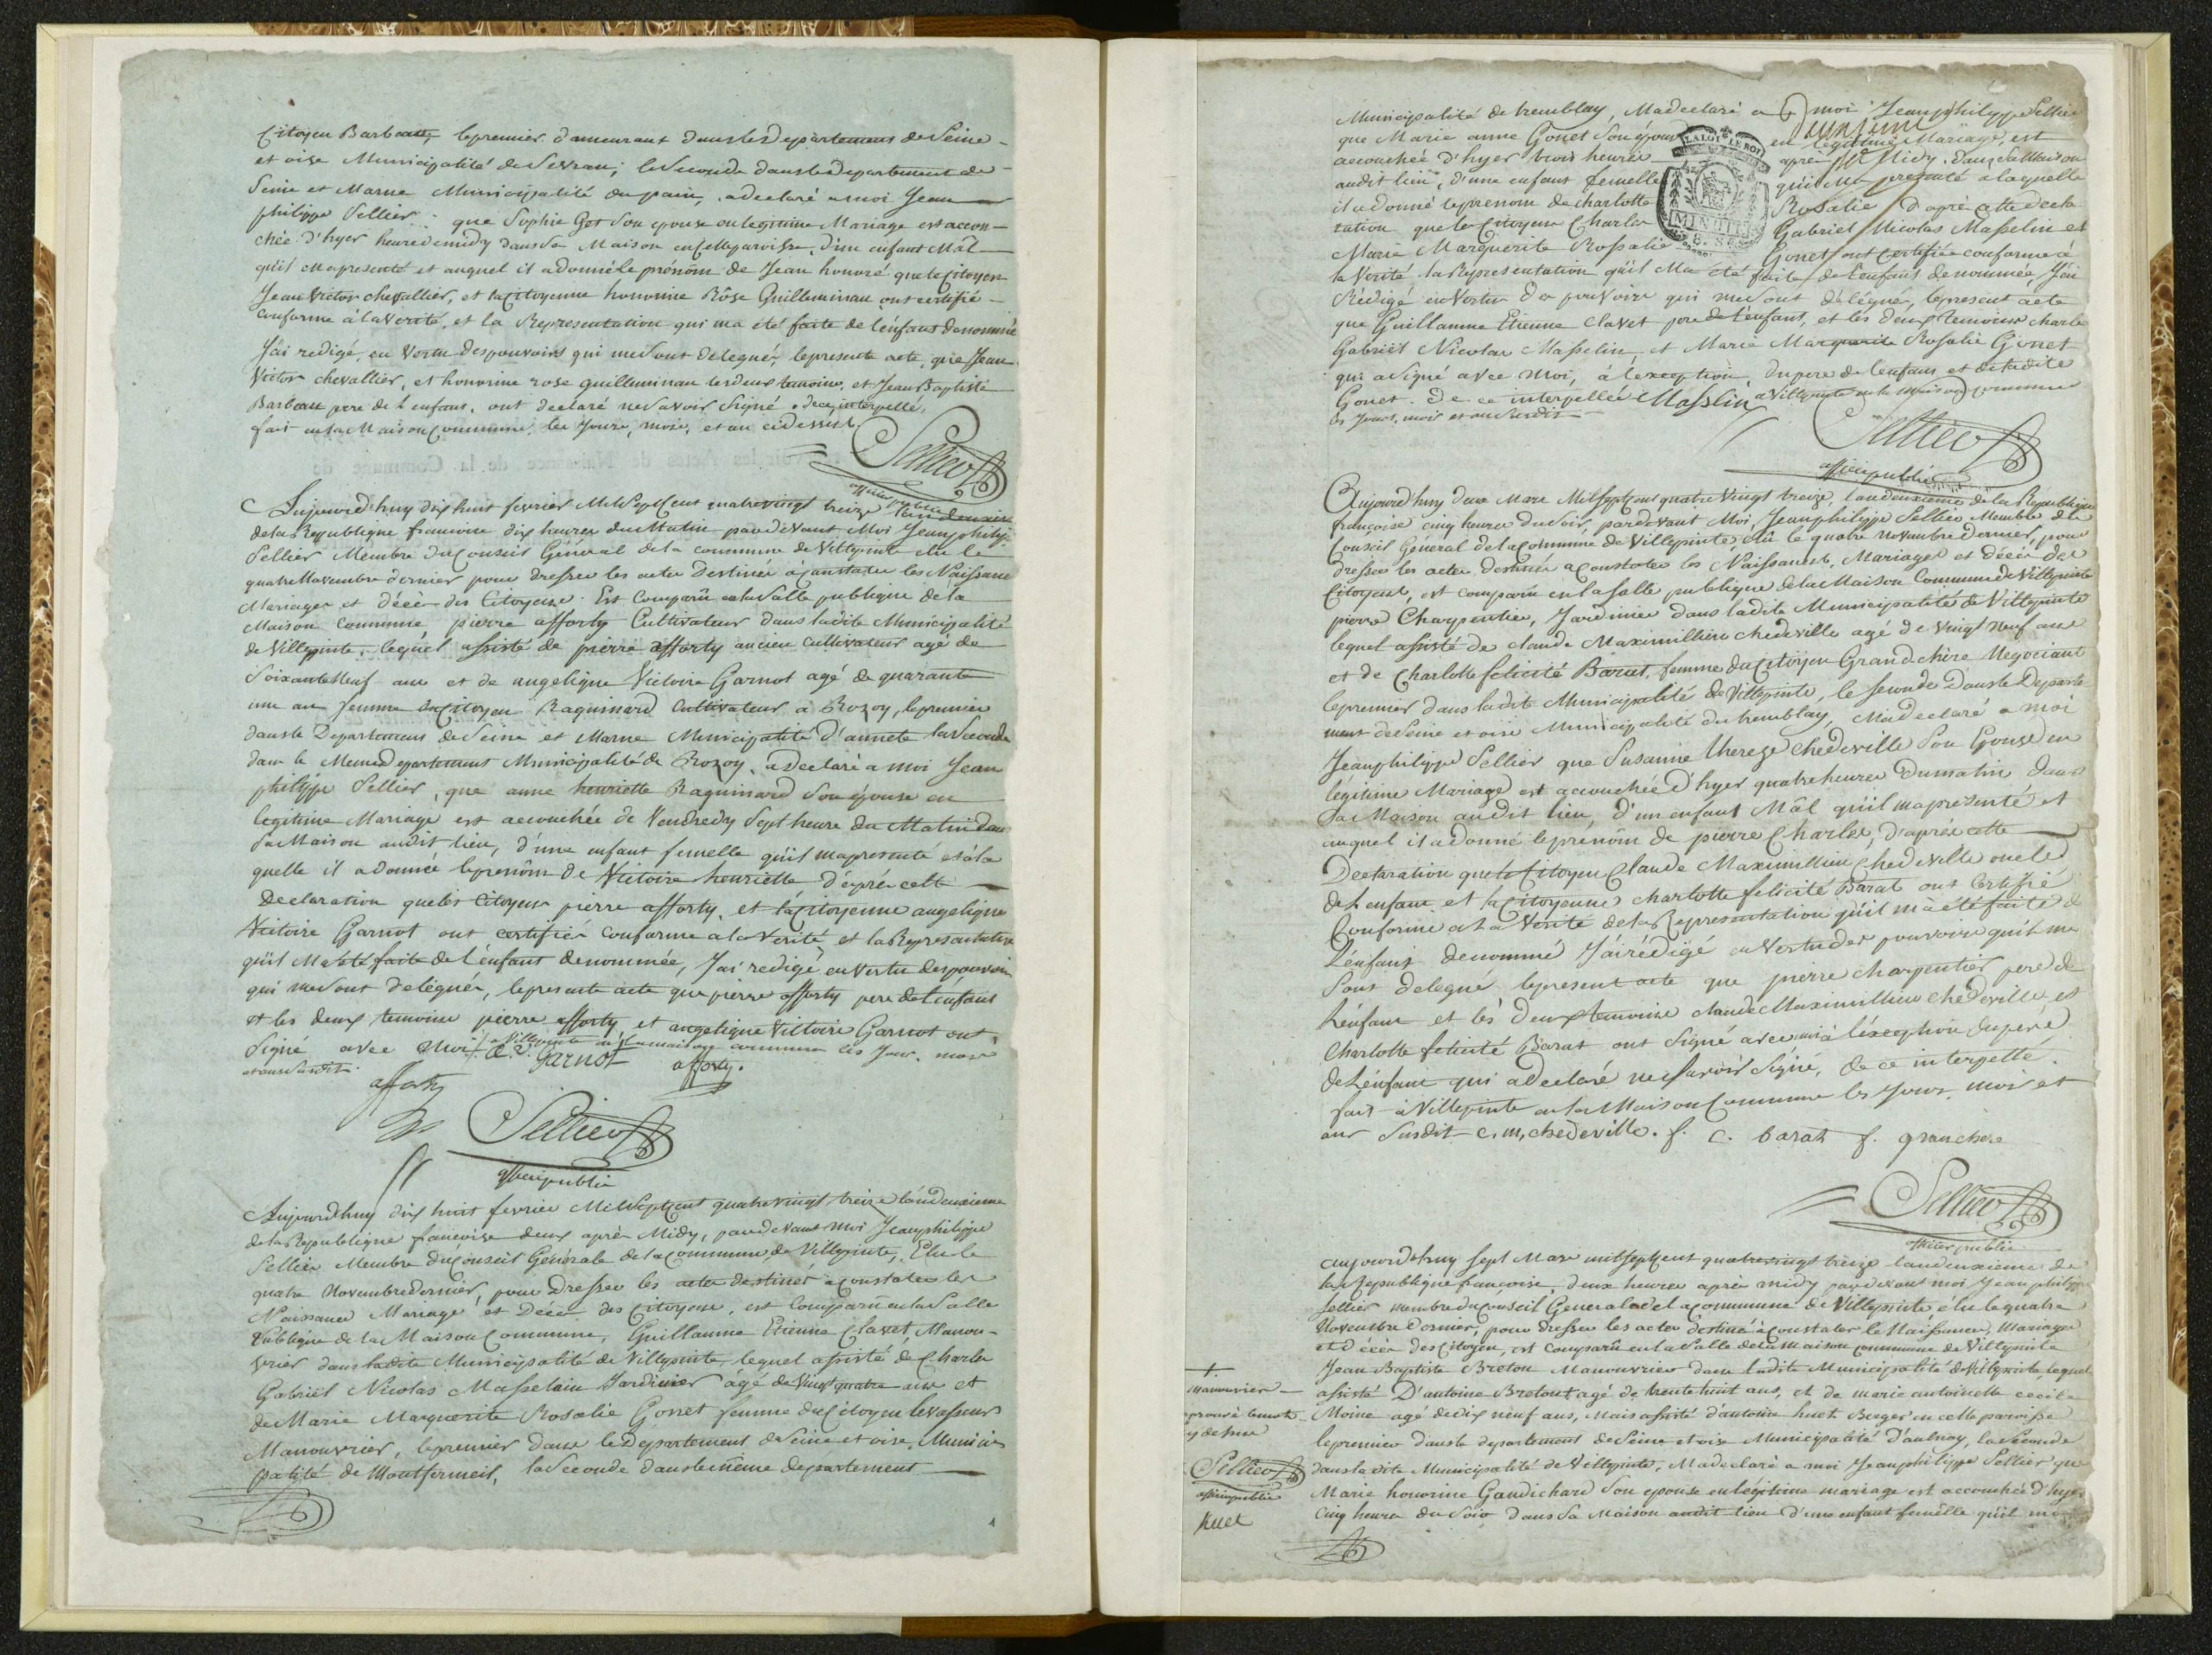 Citoyen Barbeau, lepremier demeurant dansles departemens de Seine
et oise Municipalité de Sevran; laSeconde dansledepartement de
Seine et Marne Municipalité du pain, adeclaré amoi Jean
philippe Sellier que Sophie Got Son epouse enlegitime Mariage est accou-
chée d'hyer heure demidy dansSa Maison encetteparoisse, d'un enfant Mâl
qu'il mapresenté et auquel il adonnéle prénôm de Jean honoré que leCitoyen
Jean Victor chevallier, et laCitoyenne honorine Rôse Guilleminau ont certifié
conforme à laVerité, et la Representation qui ma été faite de l'énfant denommé
J'ai redigé, en Vertu despouvoirs qui meSont delegués, lepresente acte, que Jean
Victor chevallier, et honorine rose guilleminau lesdeux temoins, et Jean Baptiste
Barbeau pere de l'enfant, ont declaré neSavoir Signé, dece interpellé,
fait enlaMaison Commune les Jours, mois, et an cidessus.
Sellier
officier public
Aujourd'huy dix huit fevrier Mil Sept Cent quatrevingt treize l'an deuxieme
dela Republique francoise dix heures du Matin pardevant Moi Jean philippe
Sellier Membre duConseil Général dela commune de Villepinte élu le
quatre Novembre dernier pour dresser les actes Destinés àconstater les Naissances
Mariages et décès des Citoyens. Est Comparû enlaSalle publique dela
Maison Commune pierre afforty Cultivateur dans ladite Municipalité
de Villepinte, lequel assisté de pierre afforty ancien Cultivateur agé de
Soixante Neuf ans et de angelique Victoire Garnot agé de quarante
un an femme duCitoyen Raguinard Cultivateur à Rozoy, lepremier
dansle Departement deSeine et Marne Municipalité d'annete laSeconde
dans le Memedepartement Municipalité de Rozoy, adeclaré a moi Jean
philippe Sellier, que anne henriette Raguinard Son épouse en
legitime Mariage est accouchée de Vendredy Sept heure du Matin dans
Sa Maison audit lieu, d'une enfant femelle qu'il mapresenté età la
quelle il adonnée leprenôm de Victoire henriette d'après cette
Declaration quelès Citoyens pierre afforty, et laCitoyenne angelique
Victoire Garnot ont certifiés conforme ala Verité et la Representation
qu'il Ma été faite del'énfant denommée, J'ai redigé en Vertu despouvoirs
qui meSont delégués, lepresente acte que pierre afforty pere del'énfant
et les deux temoins pierre afforty, et angelique Victoire Garnot ont
Signé avec Moi à Villepinte en la maison commune les Jour, mois
et an Susdit. a. v. Garnot afforty.
afforty
Sellier
officier public
Aujourdhuy dix huit fevrier Mil Sept Cent quatrevingt treize l'andeuxieme
dela Republique francoise deux après Midy, pardevant moi Jean philippe
Sellier Membre duConseil Générale delaCommune de Villepinte, Elu le
quatre Novembre dernier, pour Dresser les actes destinés aconstater les
Naissances Mariage et Décès des Citoyens, est Comparû enlaSalle
Publique de la Maison Commune, Guillaume Etienne Clavet, Manou-
vrier dans ladite Municipalité de Villepinte, lequel assisté de Charles
Gabriël Nicolas Masselain Jardinier âgé de Vingt quatre ans et
de Marie Marguerite Rosalie Gonet femme duCitoyen levasseur
Manouvrier, lepremier dans le Departement deSeine et oise, Munici
palité de Montfermeil, laSeconde dansle même departement
Municipalité de tremblay, Madeclaré a moi Jean philippe Sellier
que Marie anne Gonet Son épouse en legitime Mariage, est
accouchée d'hyer trois heures après Midy, dans Sa Maison
audit lieu, d'une enfant femelle qu'il Ma presenté a laquelle
il a donné leprenom de Charlotte Rosalie D'après cette decla
ration que les Citoyens Charles Gabriel Nicolas Masselin et
Marie Marguerite Rosalie Gonet, ont Certifiés conforme à
la Verité la Representation qu'il Ma été faite de l'énfant denommée, J'ai
Rédigé en Vertu des pouvoirs qui meSont délégués, lepresent acte
que Guillaume Etienne Clavet pere del'enfant, et les deux temoins charles
Gabriël Nicolas Masselin et Marie Marguerite Rosalie Gonet
qui a signé avec moi, à l'exception, du pere de l'enfans et deladite
Gonet. De ce interpellée Masslin a Villepinte en la maison commune
les Jours, mois et an Susdit
LA LOI LE ROI
Sellier
officier public
Aujourdhuy deux Mars Mil Sept Cent quatre Vingt treize, l'andeuxieme de la République
françoise cinq heures du Soir, pardevant Moi, Jean philippe Sellier Membre du
Conseil Général delaCommune de Villepinte, élû le quatre Novembre dernier, pour
dresser les actes destinés aConstater les Naissances, Mariages et décès des
Citoyens, est comparû en laSalle publique dela Maison Commune de Villepinte
pierre Charpentier, Jardinier dans ladite Municipalité de Villepinte
lequel assisté de claude Maximillien chedeville agé de Vingt neuf ans
et de Charlotte felicité Barat, femme duCitoyen Grandchère Negociant
lepremier dans ladite Municipalité de Villepinte, le Seconde dansle Departe
ment deSeine et oise Municipalité du tremblay, Madeclaré a moi
Jean philippe Sellier que Susanne thereze chedeville Son Epouse en
légitime Mariage est accouchée d'hyer quatre heures Dumatin dans
Sa Maison audit lieu, d'un enfant Mâl qu'il mapresenté et
auquel il a donné leprenôm de pierre Charles, d'après cette
Declaration que le Citoyen Claude Maximillien Chedeville oncle
de l'enfant et la Citoyenne charlotte felicité Barat ont Certifié
Conforme a La Vérité de la Representation qu'il m'a été faite de
L'énfant denommé J'ai rédigé en Vertu des pouvoirs qu'il me
Sont delegué lepresent acte que pierre charpentier pere de
L'énfant et lès deux temoins claude Maximillien chedeville et
Charlotte felicité Barat ont Signé avec moi à l'exception dupère
de L'énfant qui a declaré neSavoir Signé, de ce interpellé.
fait à Villepinte en la Maison Commune les Jours, mois et
an Susdit c. m. chedeville. f. c. barat f. granchere
Sellier
officier public
aujourdhuy Sept Mars mil Sept cent quatrevingt treize l'andeuxieme de
la Republique françoise, deux heures après midy pardevant moi Jean philippe
Sellier membre duConseil General de la commune de Villepinte élu le quatre
Novembre dernier, pour dresser les actes destiné àConstater le Naissances, Mariages
et décès des Citoyen, est Comparû en la Salle dela maison commune de Villepinte
Jean Baptiste Breton Manouvrier dans ladite Municipalité deVillepinte, lequel
assisté D'antoine Breton + agé de trente huit ans, et de marie antoinette cecile
Moine agé dedix neuf ans, Mais assisté d'antoine huet Berger en cette paroisse
lepremier dansle departement deSeine et oise Municipalité d'aulnay, laSeconde
dans la dite Municipalité de Villepinte, Madeclaré a moi Jean philippe Sellier que
Marie honorine Gaudichard Son epouse en légitime mariage est accouchée d'hyer
Cinq heures du Soir dans Sa Maison audit lieu d'une enfant femelle qu'il m'a
+
manouvrier
Sellier
officier public
huet